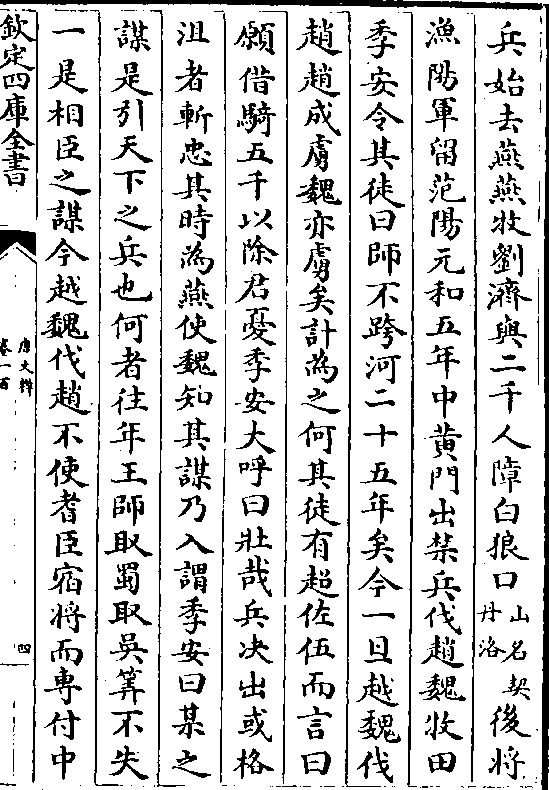 兵始去燕燕牧劉濟與二千人障白狼口山名契丹洛後將
漁陽軍留范陽元和五年中黃門出禁兵伐趙魏牧田
季安令其徒曰師不跨河二十五年矣今一旦越魏伐
趙趙成虜魏亦虜矣計為之何其徒有超佐伍而言曰
願借騎五千以除君憂季安大呼曰壯哉兵決出或格
沮者斬忠其時為燕使魏知其謀乃入謂季安曰某之
謀是引天下之兵也何者往年王師取蜀取吳筭不失
一是相臣之謀今越魏伐趙不使耆臣宿將而專付中
欽定四庫全書
唐文粹
卷一百
四